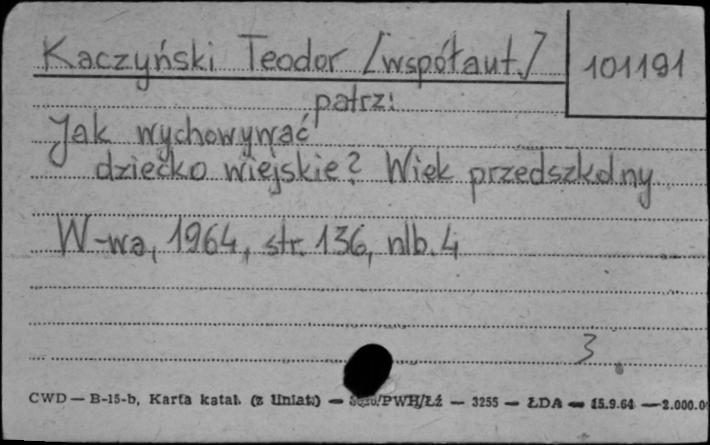 Kaczyński Teodor [współaut.] 101191
patrz:
Jak wychowywać
dziecko wiejskie? Wiek przedszkolny
W-wa, 1964, str. 136, nlb. 4
3
CWD — B-15-b, Karta katal. (z liniat.) — /PWH/Łź — 3255 — ŁDA — 15.9.64 — 2.000.0